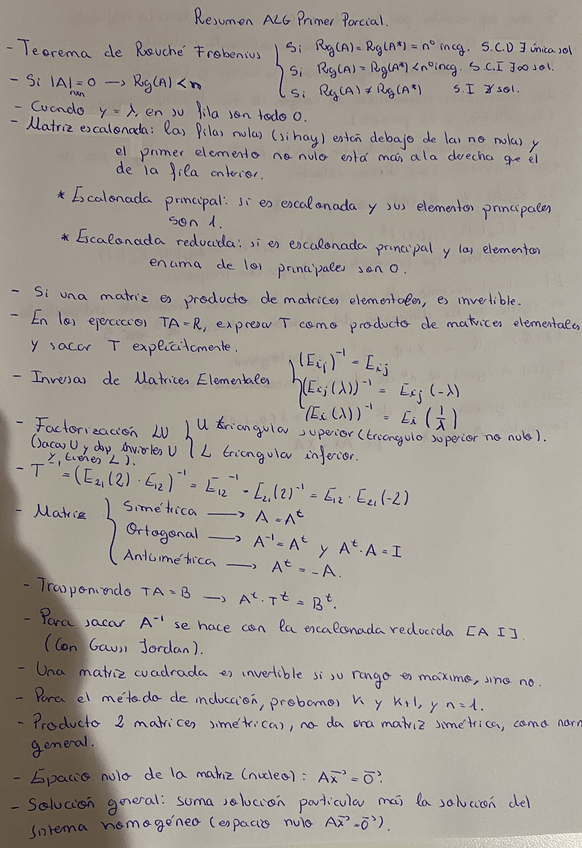 Resumen ALG Primer Parcial.
- Teorema de Rouché Frobenius { Si Rg(A) = Rg(A*) = nº incg. S.C.D ∃ única sol
Si Rg(A) = Rg(A*) < nº incg. S.C.I ∃ ∞ sol.
Si Rg(A) ≠ Rg(A*) S.I ∄ sol.
- Si |A| = 0 → Rg(A) < n
nxn
- Cuando y = λ, en su fila son todo 0.
- Matriz escalonada: las filas nulas (si hay) están debajo de las no nulas y
el primer elemento no nulo está más a la derecha que el
de la fila anterior.
* Escalonada principal: si es escalonada y sus elementos principales
son 1.
* Escalonada reducida: si es escalonada principal y los elementos
encima de los principales son 0.
- Si una matriz es producto de matrices elementales, es invertible.
- En los ejercicios TA=R, expresa T como producto de matrices elementales
y sacar T explícitamente.
- Inversas de Matrices Elementales { (Eij)⁻¹ = Eij
(Eij(λ))⁻¹ = Eij(-λ)
(Ei(λ))⁻¹ = Ei(1/λ)
- Factorización LU { U triangular superior (triangulo superior no nulo).
(sacas U y dsp inviertes U L triangular inferior.
y tienes L).
- T⁻¹ = (E21(2) · E12)⁻¹ = E12⁻¹ · E21(2)⁻¹ = E12 · E21(-2)
- Matriz { Simétrica → A = Aᵗ
Ortogonal → A⁻¹ = Aᵗ y Aᵗ·A = I
Antisimétrica → Aᵗ = -A.
- Trasponiendo TA = B → Aᵗ·Tᵗ = Bᵗ.
- Para sacar A⁻¹ se hace con la escalonada reducida [A I].
(Con Gauss Jordan).
- Una matriz cuadrada es invertible si su rango es máximo, sino no.
- Para el método de inducción, probamos K y K+1, y n=1.
- Producto 2 matrices simétricas, no da otra matriz simétrica, como norm
general.
- Espacio nulo de la matriz (nucleo): Ax⃗ = 0⃗.
- Solución general: suma solución particular más la solución del
sistema homogéneo (espacio nulo Ax⃗=0⃗).